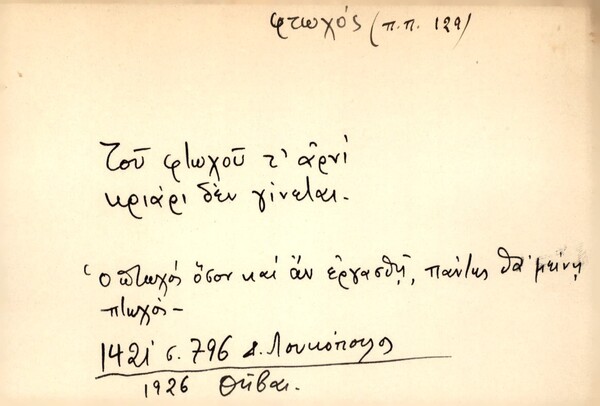 φτωχός (π.π. 129)
Τοῦ φτωχοῦ τ' ἀρνί
κριάρι δὲν γίνεται.
Ὁ πτωχός ὅσον καί ἄν ἐργασθῇ, πάντως θά μείνῃ
πτωχός -
1421 σ. 796 Δ. Λουκόπουλος
1926 Θῆβαι.